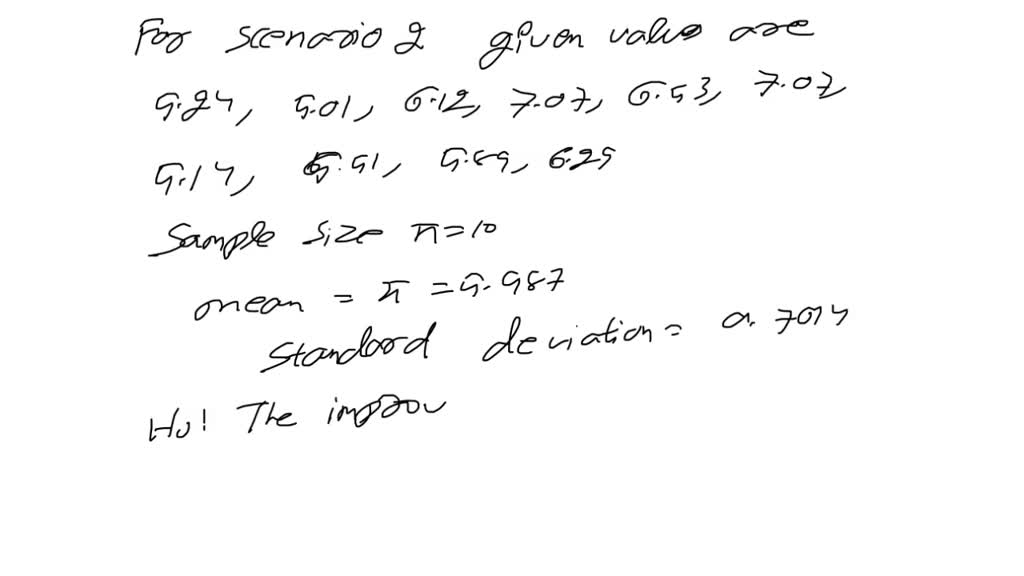 For scenario 2 given value are
5.24, 5.01, 6.12, 7.07, 6.53, 7.07
5.14, 5.51, 5.89, 6.25
Sample size n=10
mean = x̄ = 5.987
Standard deviation = 0.7014
H0: The improv